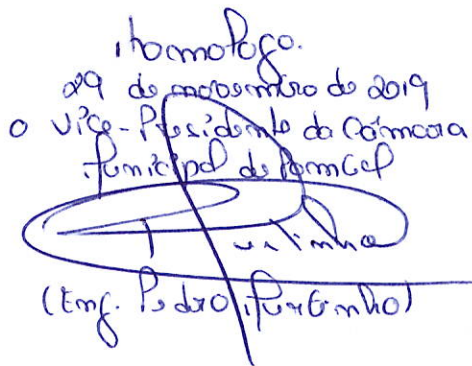 Homologo.
29 de novembro de 2019
O Vice-Presidente da Câmara
Municipal de Pombal
(Eng. Pedro Murtinho)